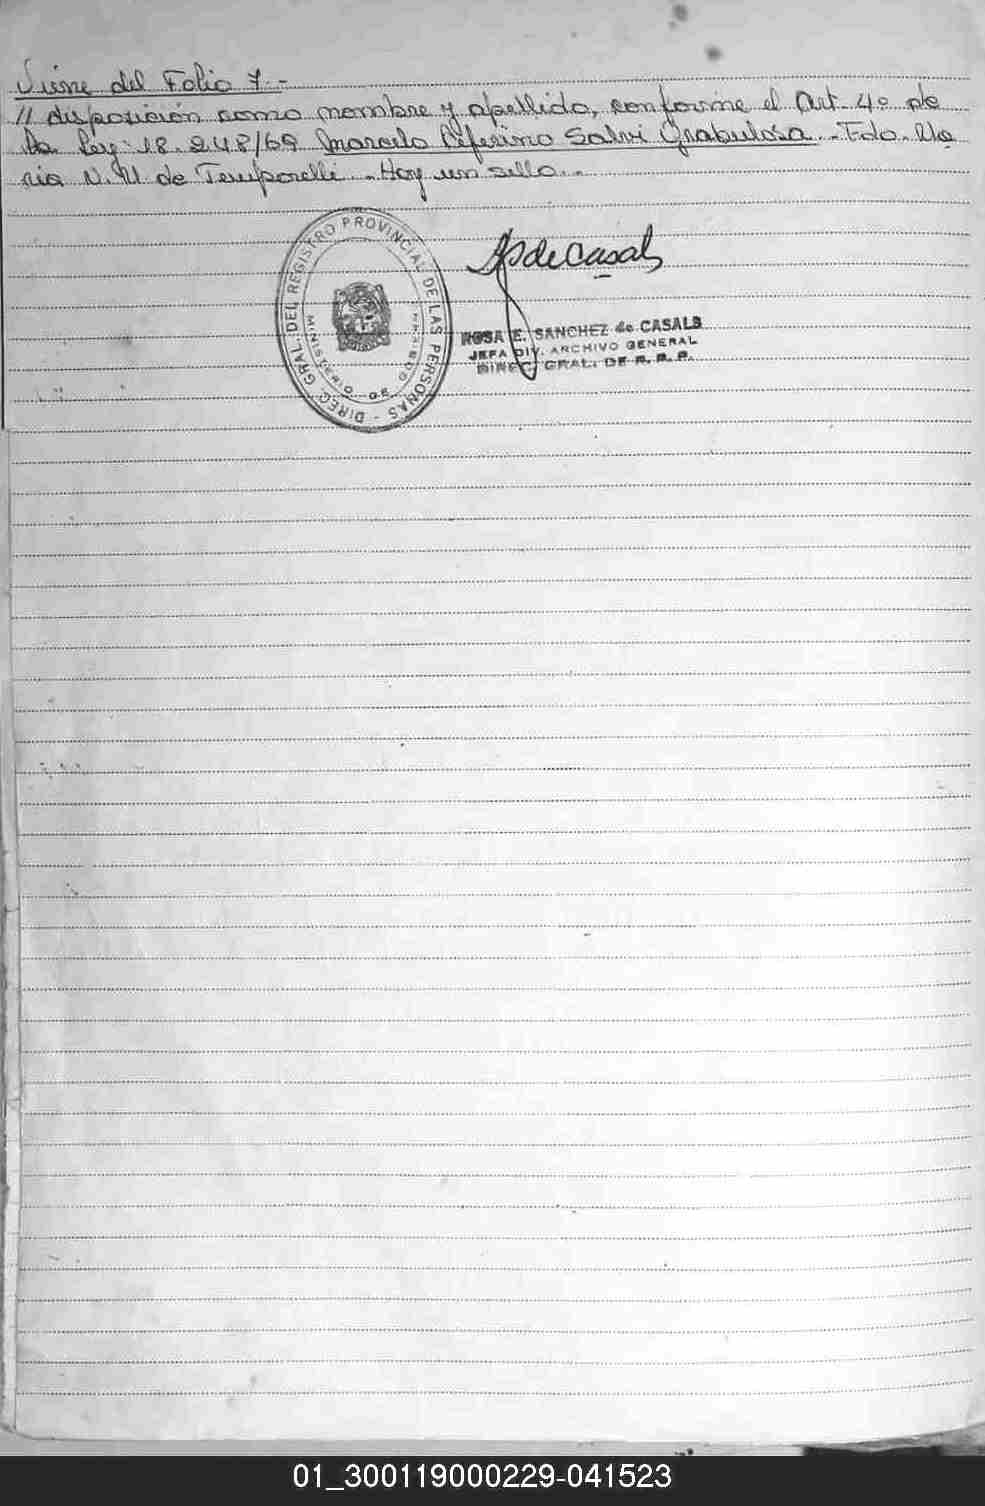 Viene del Folio 7.-
// disposición como nombre y apellido, conforme el Art. 4º de
la Ley: 18.248/69 Marcelo Ceferino Salvi Grabulosa.- Fdo. Ma
ria N. M de Temporelli.- Hay un sello.-
DIREC. GRAL. DEL REGISTRO PROVINCIAL DE LAS PERSONAS -
MINISTERIO DE
deCasals
ROSA E. SANCHEZ de CASALS
JEFA DIV. ARCHIVO GENERAL
DIREC. GRAL. DE R. P. P.
01_300119000229-041523